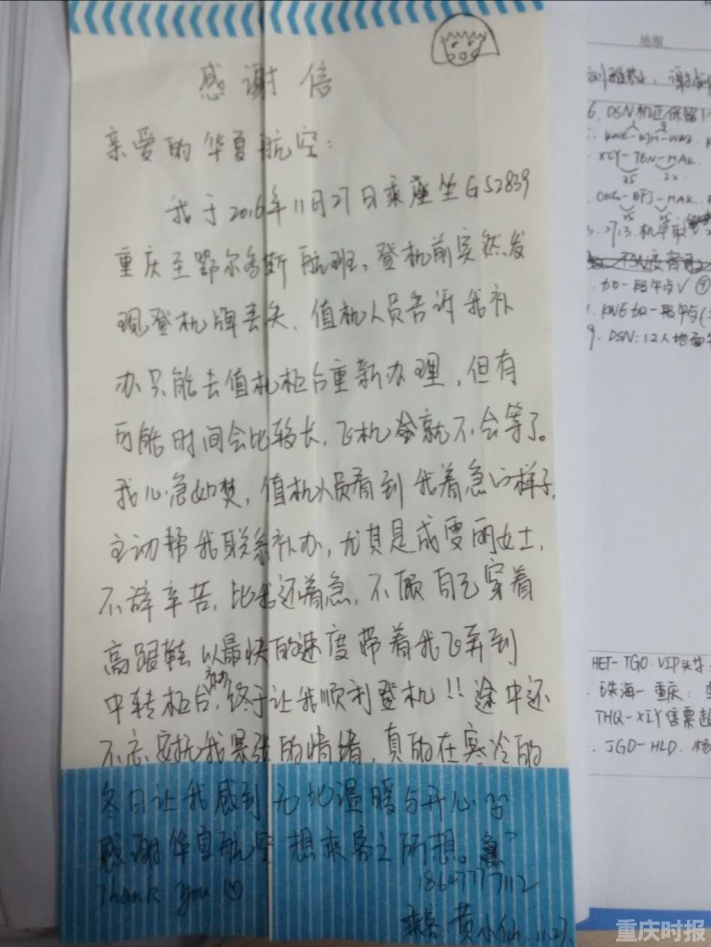 感谢信
亲爱的华夏航空：
我于2016年11月27日乘座坐G52839
重庆至鄂尔多斯航班，登机前突然发
现登机牌丢失，值机人员告诉我补
办只能去值机柜台重新办理，但有
可能时间会比较长，飞机就不会等了。
我心急如焚，值机人员看到我着急的样子，
主动帮我联系补办，尤其是成雯丽女士，
不辞辛苦，比我还着急，不顾自己穿着
高跟鞋以最快的速度带着我飞奔到
中转柜台，终于让我顺利登机！！途中还
不忘安抚我紧张的情绪，真的在寒冷的
冬日让我感到无比温暖与开心
感谢华夏航空想乘客之所想。
Thank you
乘客：黄小仙 11.27
地服
6. DSN机正保留
XIY-TEN-HAK
25 22
CKG-BPJ-HAK
3. 2713.机
9. DSN:12人地面
HET-TGO.VIP
珠海-重庆：
THQ-XIY信票
JGD-HLD.
重庆时报